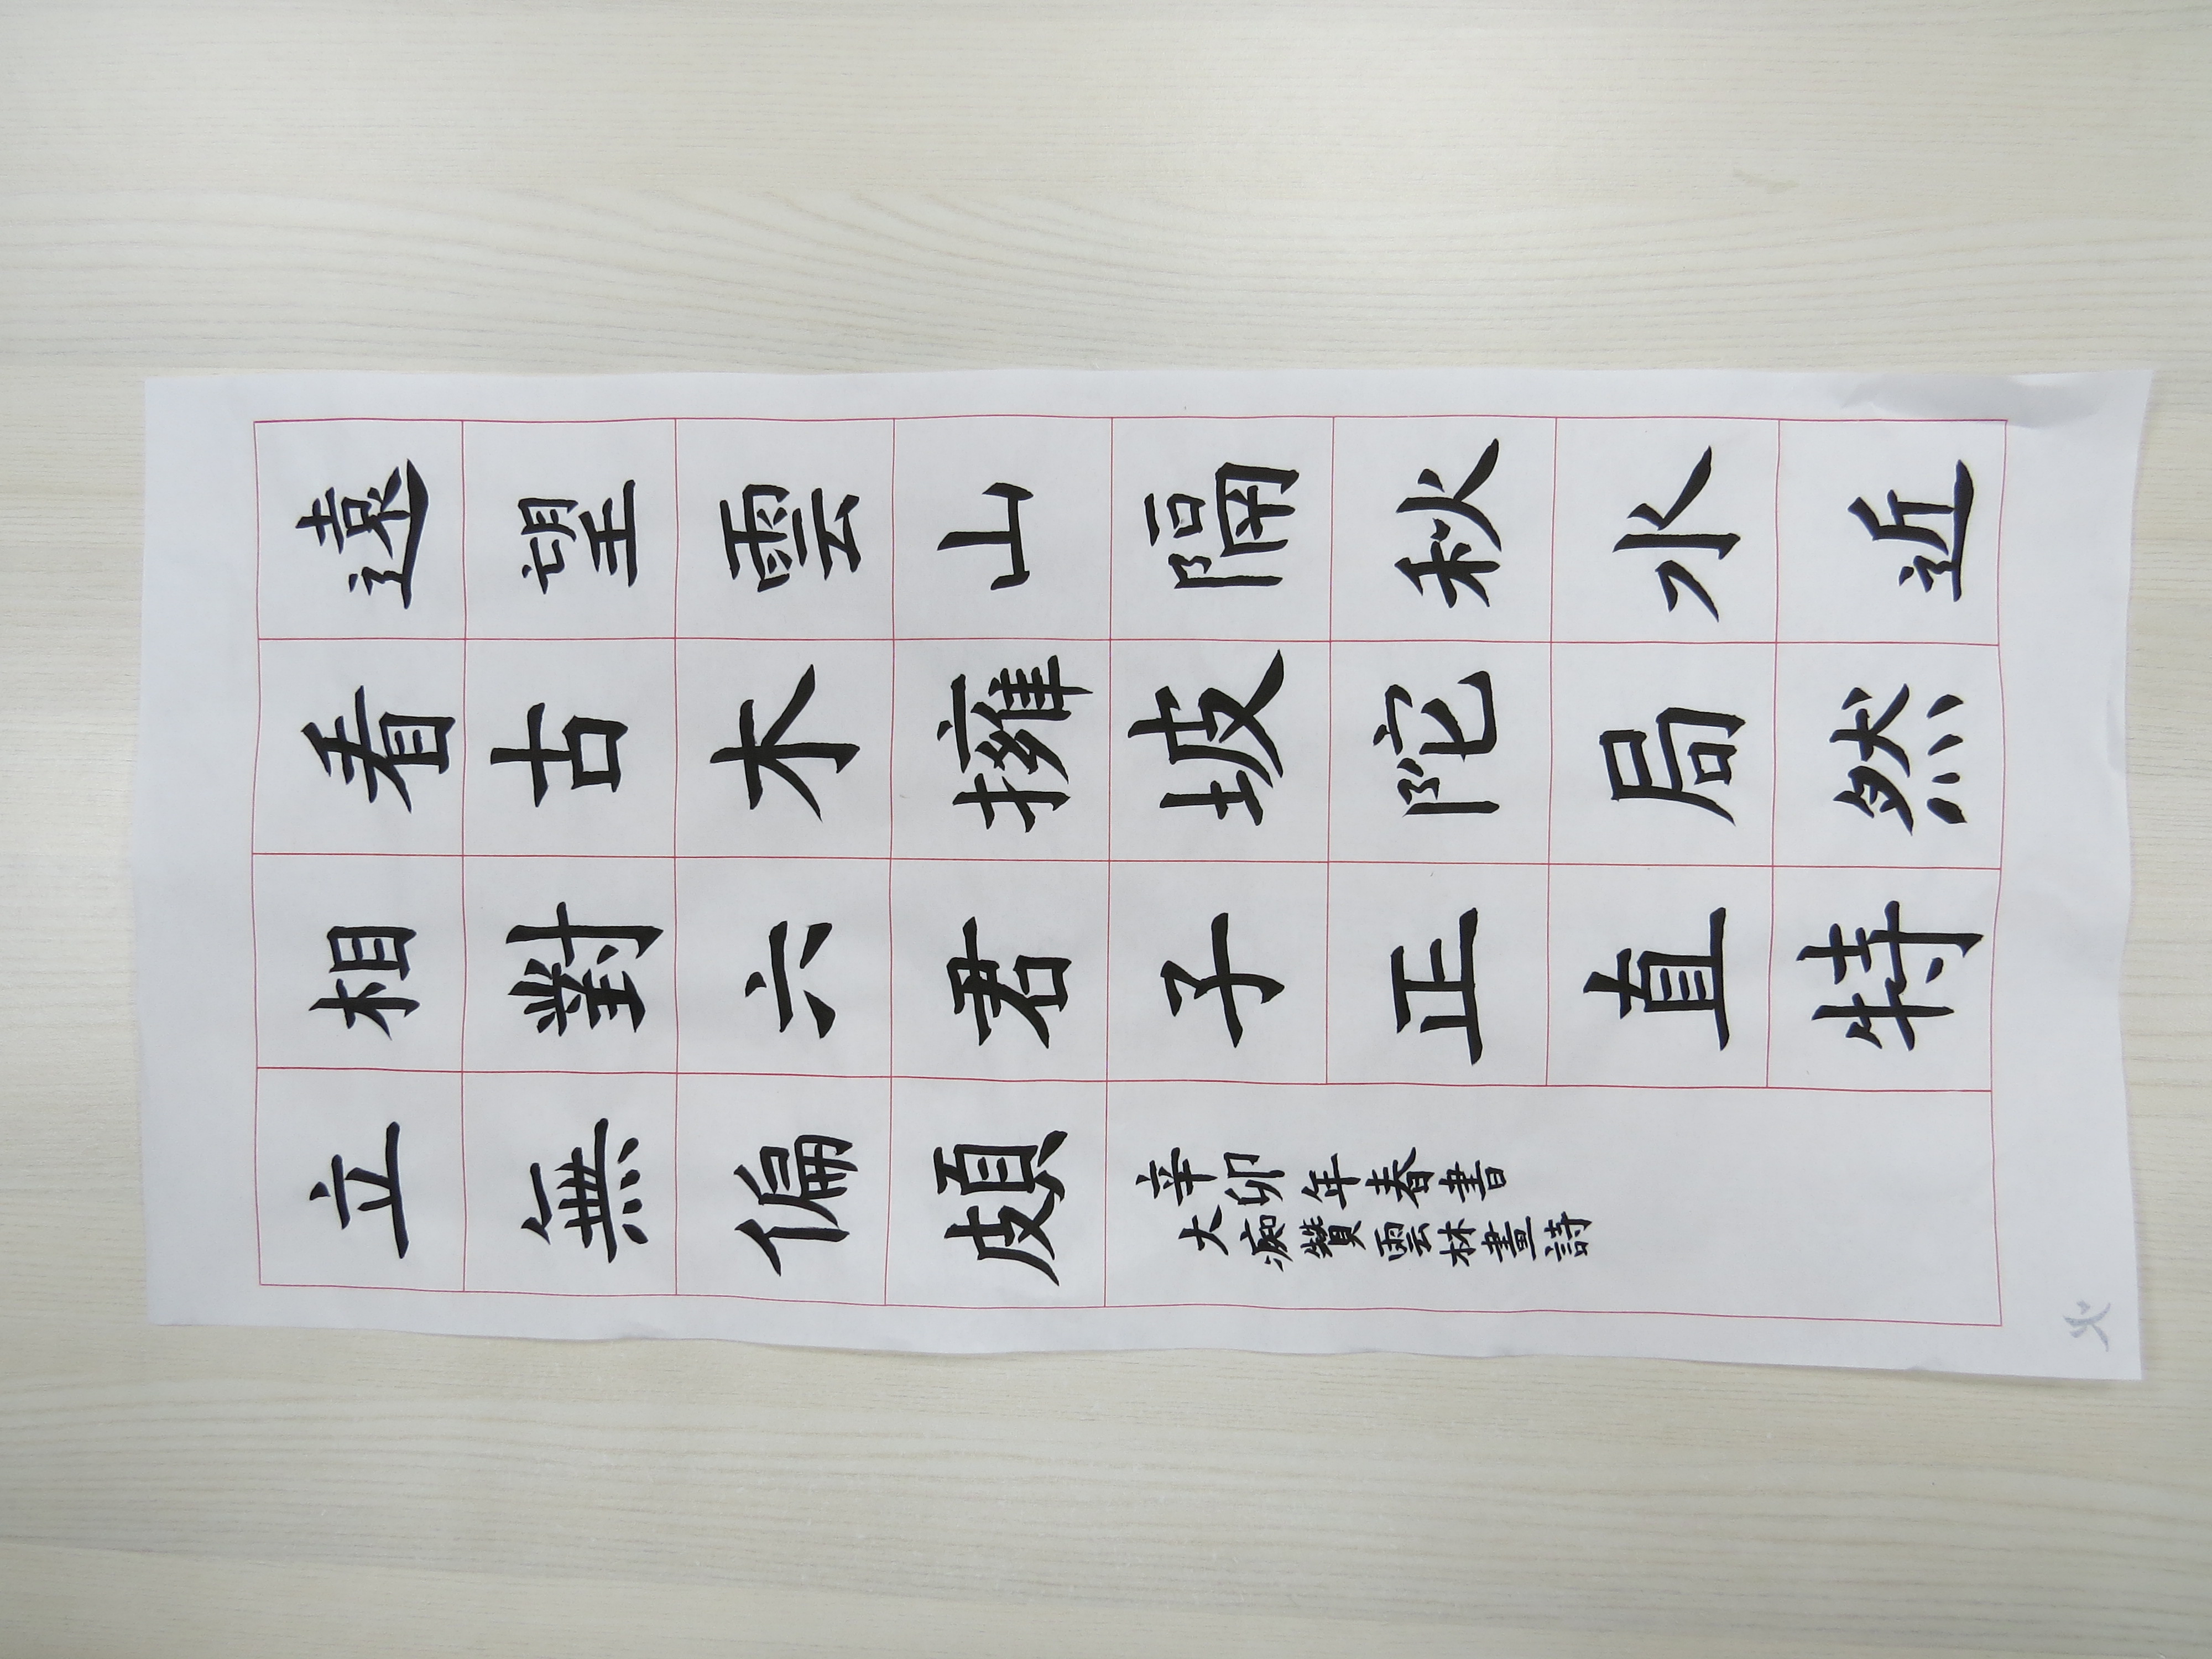 遠望雲山隔秋水近
看古木擁坡陀局然
相對六君子正直特
立無偏頗
辛卯年春書
大癡贊雲林畫詩
火